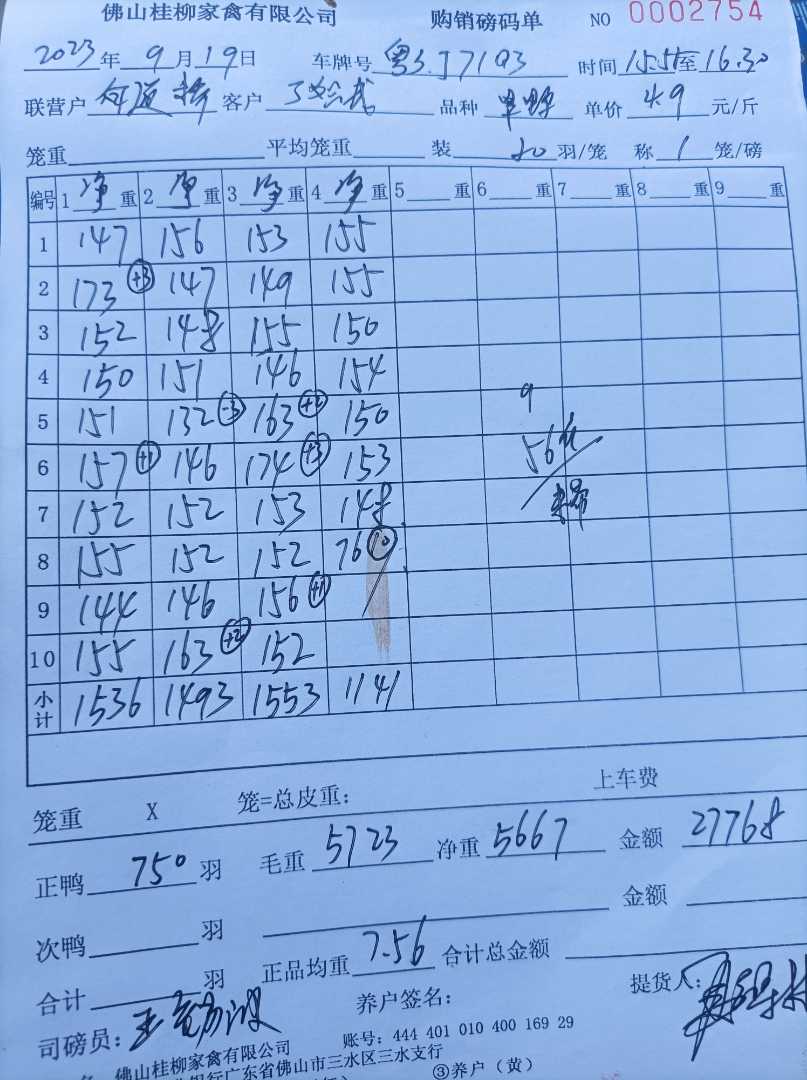 佛山桂柳家禽有限公司 购销磅码单 NO 0002754
2023年9月19日 车牌号 粤S.J71Q3 时间 15.51至16.30
联营户 客户 品种 单价 4.9 元/斤
笼重 平均笼重 装 20 羽/笼 称 1 笼/磅
编号 1 净 重 2 净 重 3 净 重 4 净 重 5 重 6 重 7 重 8 重 9 重
1 147 156 153 155
2 173 +3 147 149 155
3 152 148 155 150
4 150 151 146 154
5 151 132 -3 163 +2 150 9
6 157 +1 146 174 +3 153 56
7 152 152 153 148
8 155 152 152 76 10
9 144 146 156 +1
10 155 163 +2 152
小计 1536 1493 1553 1141
笼重 X 笼=总皮重: 上车费
正鸭 750 羽 毛重 5723 净重 5667 金额 27768
次鸭 羽 金额
合计 羽 正品均重 7.56 合计总金额
司磅员: 养户签名: 提货人:
佛山桂柳家禽有限公司 账号: 444 401 010 400 169 29
银行广东省佛山市三水区三水支行
③养户(黄)